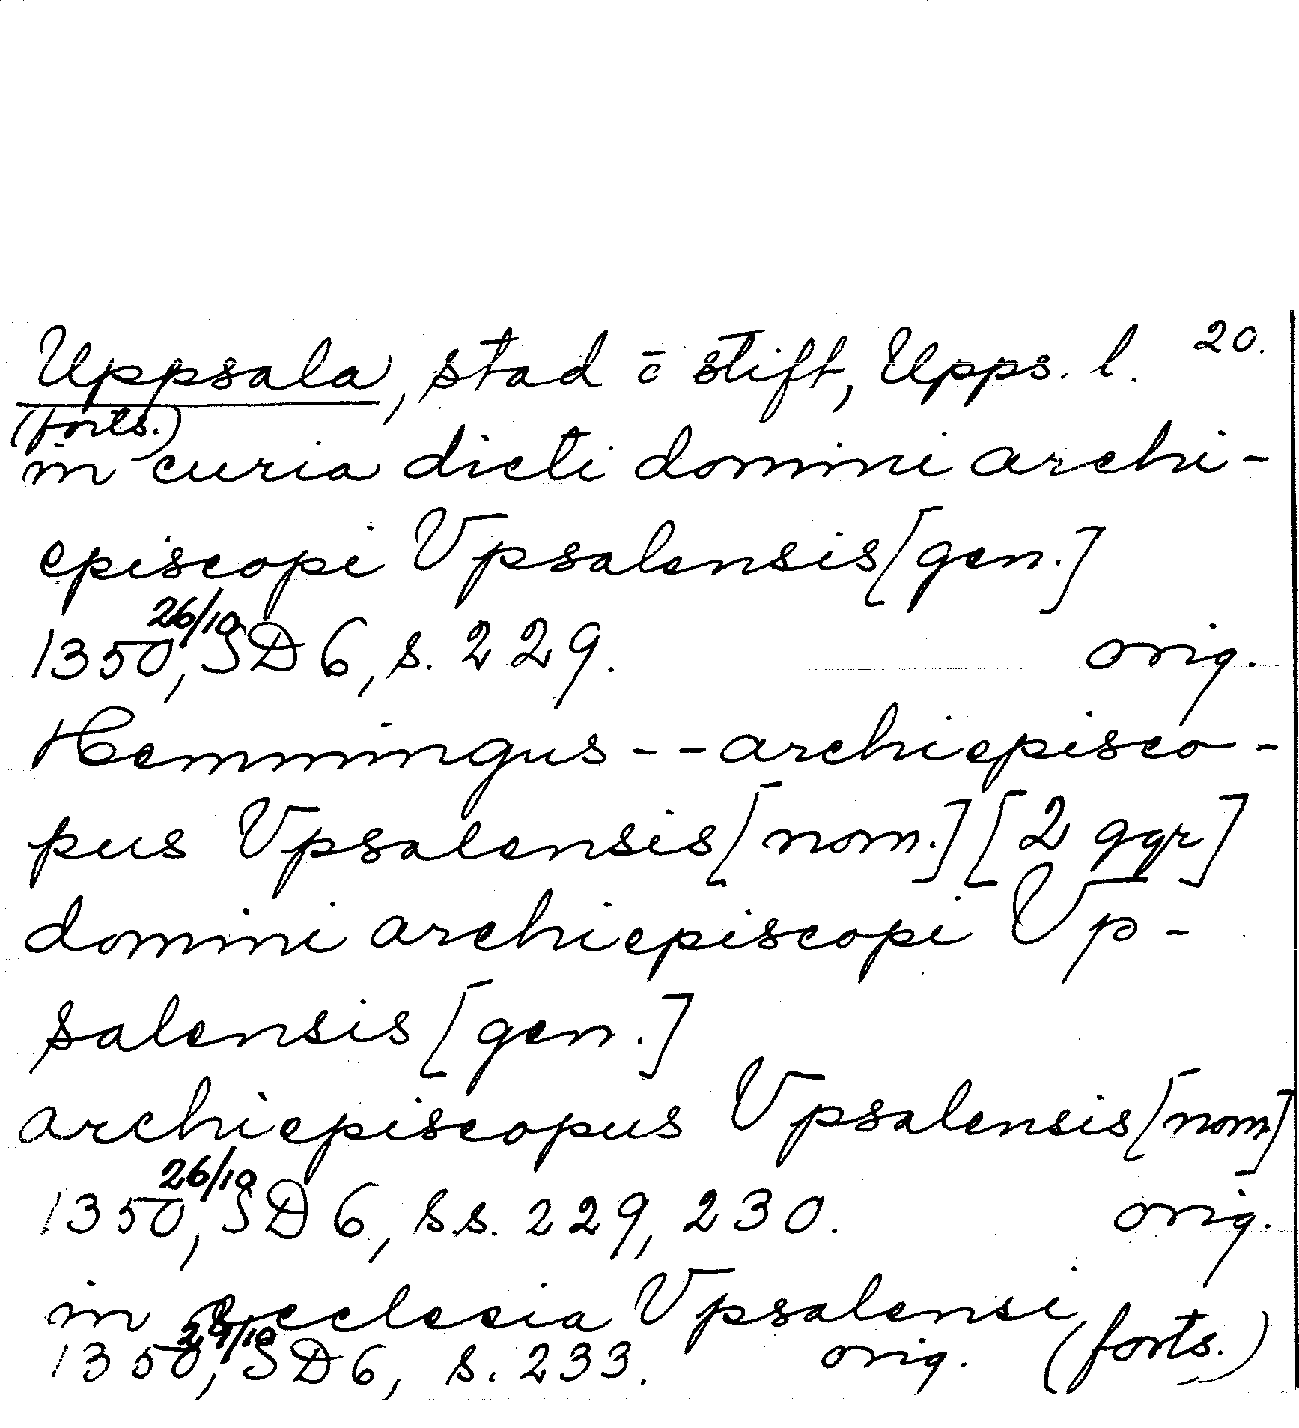 Uppsala, stad c̄ stift, Upps. l. 20.
(forts.)
in curia dicti domini archi-
episcopi Vpsalensis [gen.]
1350 26/10, SD 6, s. 229. orig.
Hemmingus -- archiepisco-
pus Vpsalensis [nom.] [2 ggr]
domini archiepiscopi Vp-
salensis [gen.]
archiepiscopus Vpsalensis [nom]
1350 26/10, SD 6, s.s. 229, 230. orig.
in ecclesia Vpsalensi
1350, SD 6, s. 233. orig. (forts.)